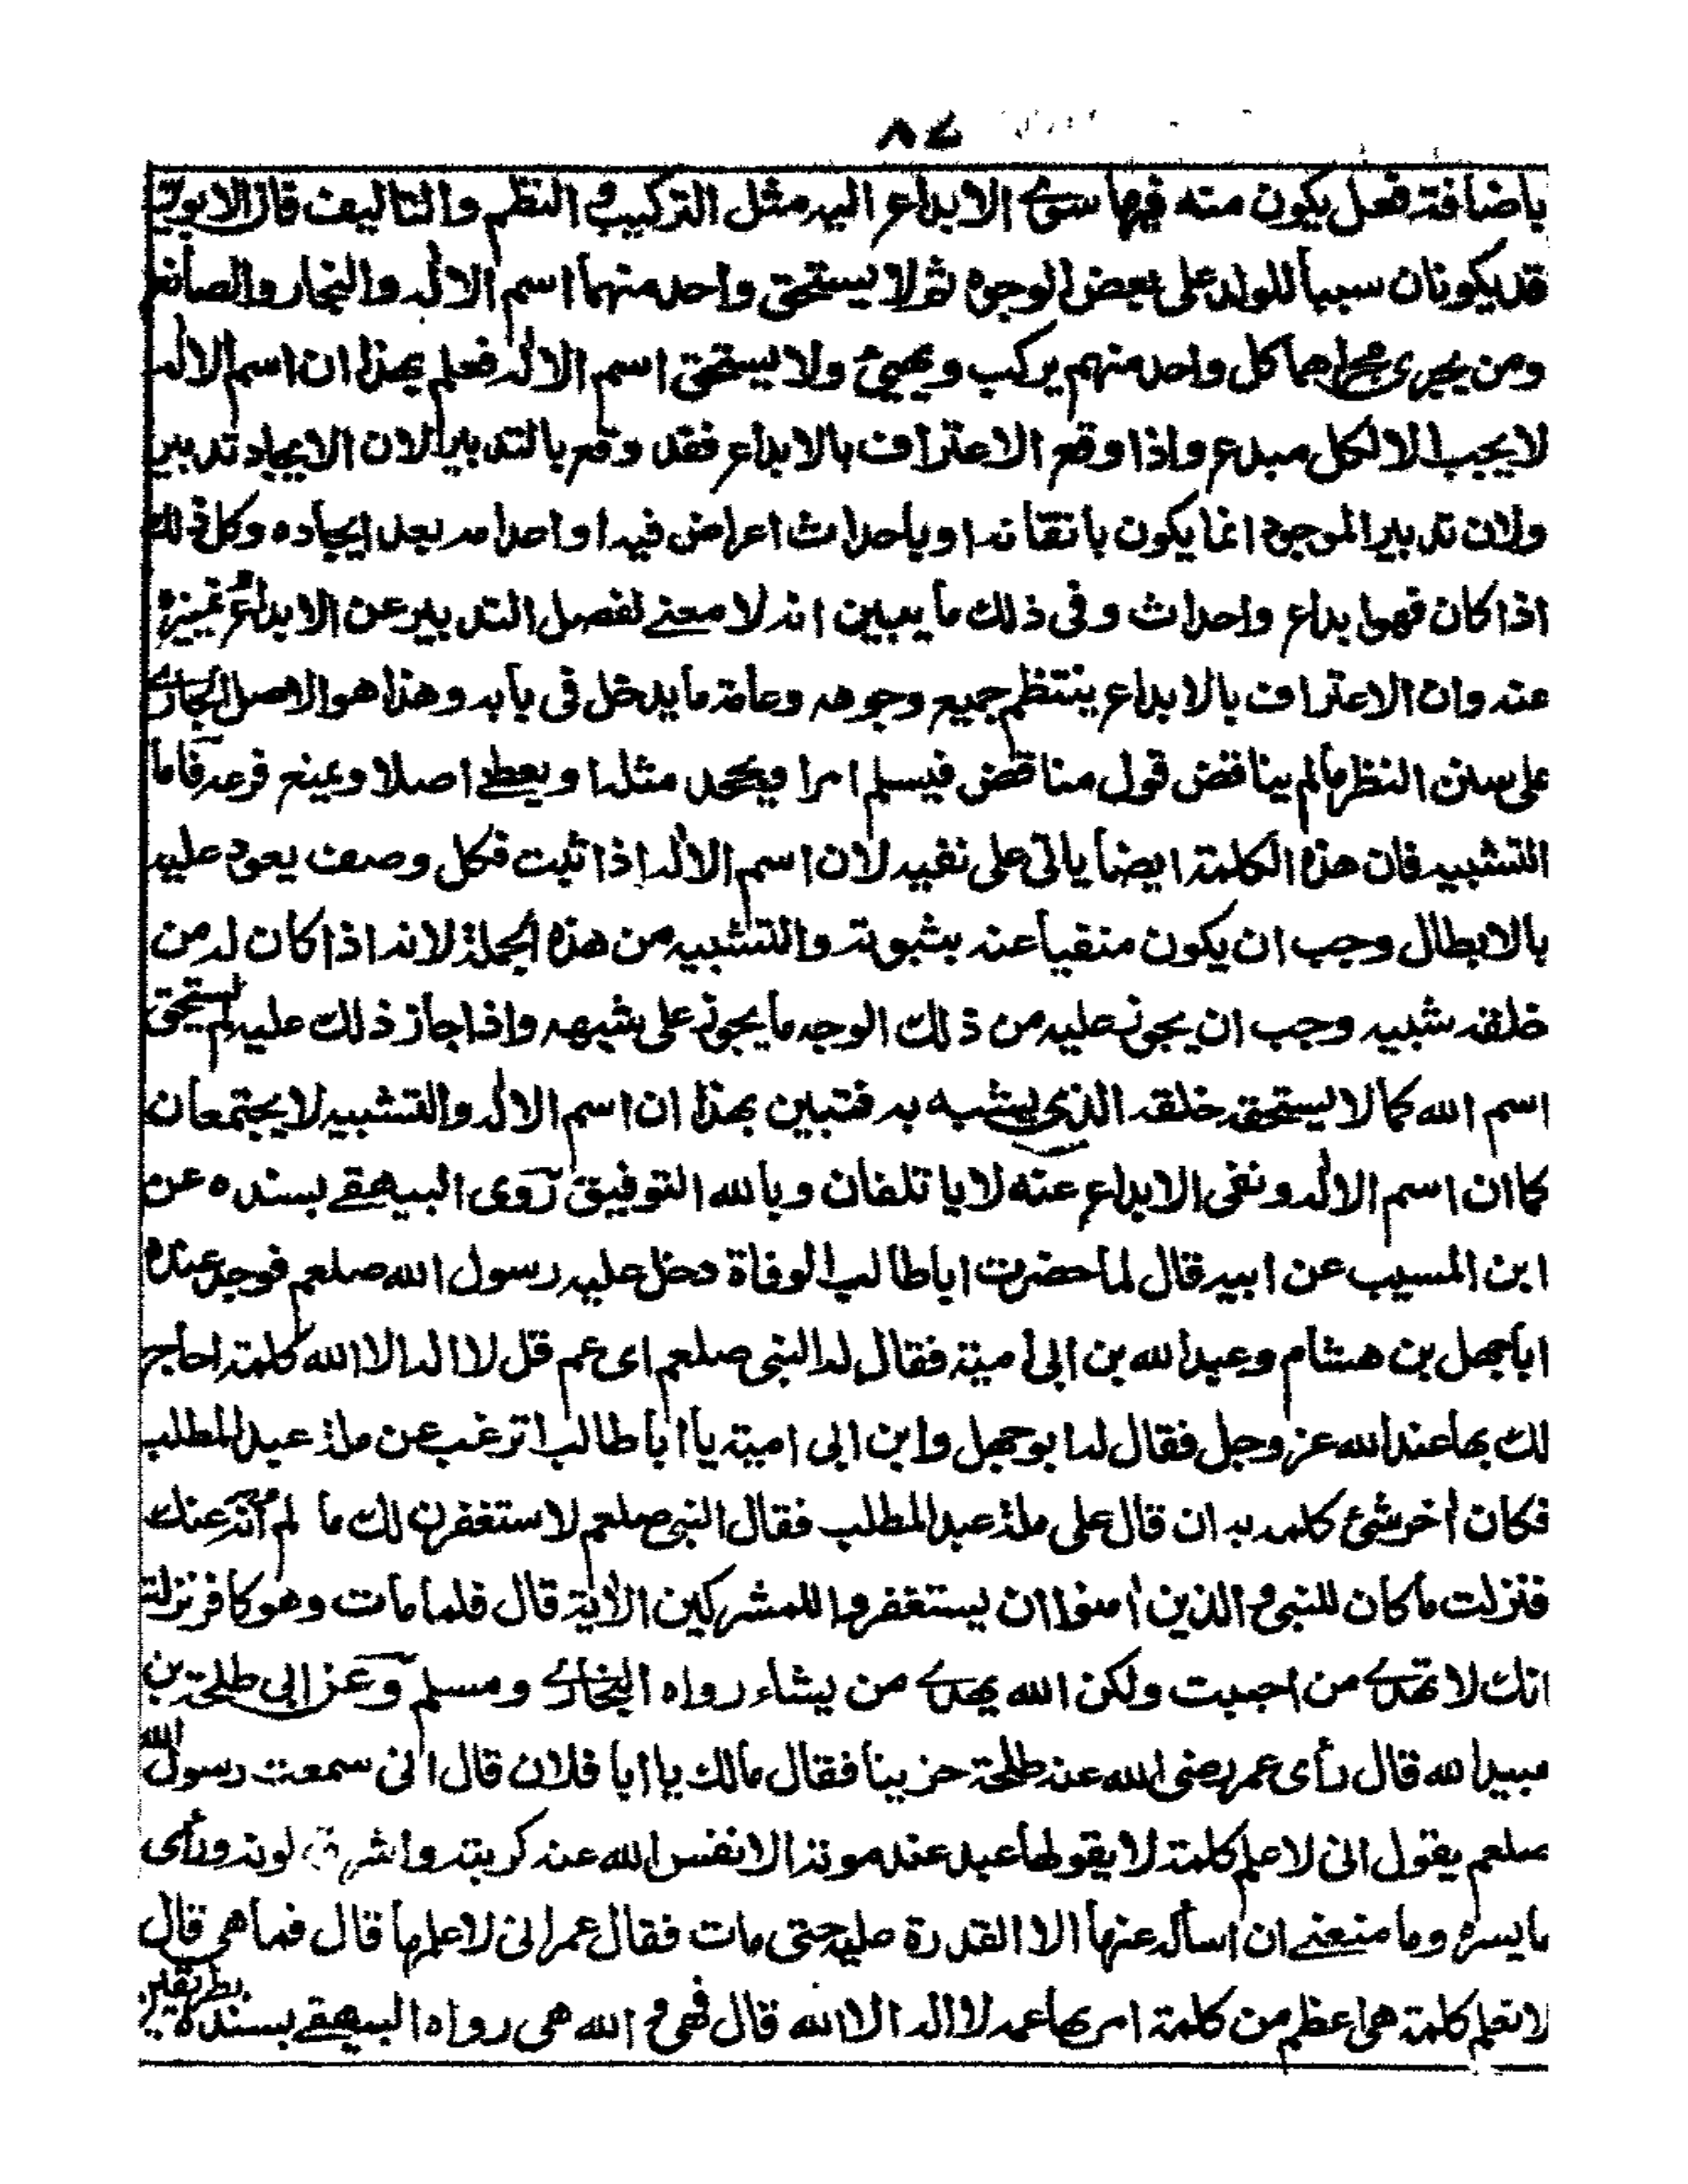 ٨٤
باضافة فعل يكون منه فيها سوى الابداع اليه مثل التركيب و النظم والتاليف فان الابوين
قد يكونان سببا للولد على بعض الوجوه ثم لا يستحق واحد منهما اسم الاله والنجار والصانع
ومن يجرى مجراهما كل واحد منهم يركب ويهيئ ولا يستحق اسم الاله فعلم بهذا ان اسم الاله
لا يجب الا لكل مبدع واذا وقع الاعتراف بالابداع فقد وقع بالتدبير لان الايجاد تدبير
ولان تدبير الموجود انما يكون باتقانه او باحداث اعراض فيه او احدامه بعد ايجاده وكل ذلك
اذا كان فهو ابداع واحداث وفى ذلك ما يبين انه لا معنے لفصل التدبير عن الابداع تميزه
عنه وان الاعتراف بالابداع ينتظم جميع وجوهه وعامة ما يدخل فى بابه وهذا هو الاصل الجارے
على سنن النظر ما لم يناقض قول مناقض فيسلم امرا ويجحد مثله او يعطے اصلا ويمنع فرعه فاما
التشبيه فان هذه الكلمة ايضا ياتى على نفيه لان اسم الاله اذا ثبت فكل وصف يعود عليه
بالابطال وجب ان يكون منفيا عنه بثبوته والتشبيه من هذه الجملة لانه اذا كان له من
خلقه شبيه وجب ان يجوز عليه من ذلك الوجه ما يجوز على شبهه واذا جاز ذلك عليه لم يستحق
اسم الله كما لا يستحقه خلقه الذى يشبه به فتبين بهذا ان اسم الاله والتشبيه لا يجتمعان
كما ان اسم الاله ونفى الابداع عنه لا ياتلفان وبالله التوفيق روى البيهقے بسنده عن
ابن المسيب عن ابيه قال لما حضرت ابا طالب الوفاة دخل عليه رسول الله صلعم فوجد عنده
ابا جهل بن هشام وعبد الله بن ابى امية فقال له النبى صلعم اى عم قل لا اله الا الله كلمة احاج
لك بها عند الله عز وجل فقال له ابو جهل وابن ابى امية يا ابا طالب اترغب عن ملة عبد المطلب
فكان اخر شئ كلمه به ان قال على ملة عبد المطلب فقال النبى صلعم لاستغفرن لك ما لم انه عنك
فنزلت ما كان للنبى والذين امنوا ان يستغفروا للمشركين الاية قال فلما مات وهو كافر نزلت
انك لا تهدے من احببت ولكن الله يهدے من يشاء رواه البخارے ومسلم وعن ابى طلحة بن
عبيد الله قال رأى عمر رضى الله عنه طلحة حزينا فقال مالك يا ابا فلان قال انى سمعت رسول الله
صلعم يقول انى لاعلم كلمة لا يقولها عبد عند موته الا نفس الله عنه كربته واشرق لونه ورأى
ما يسره وما منعنے ان اسأله عنها الا القدرة عليه حتى مات فقال عمر انى لاعلم ما قال فما هى قال
لا نعلم كلمة هى اعظم من كلمة امر بها عمه لا اله الا الله قال فهى و الله هى رواه البيهقے بسنده بطريقين